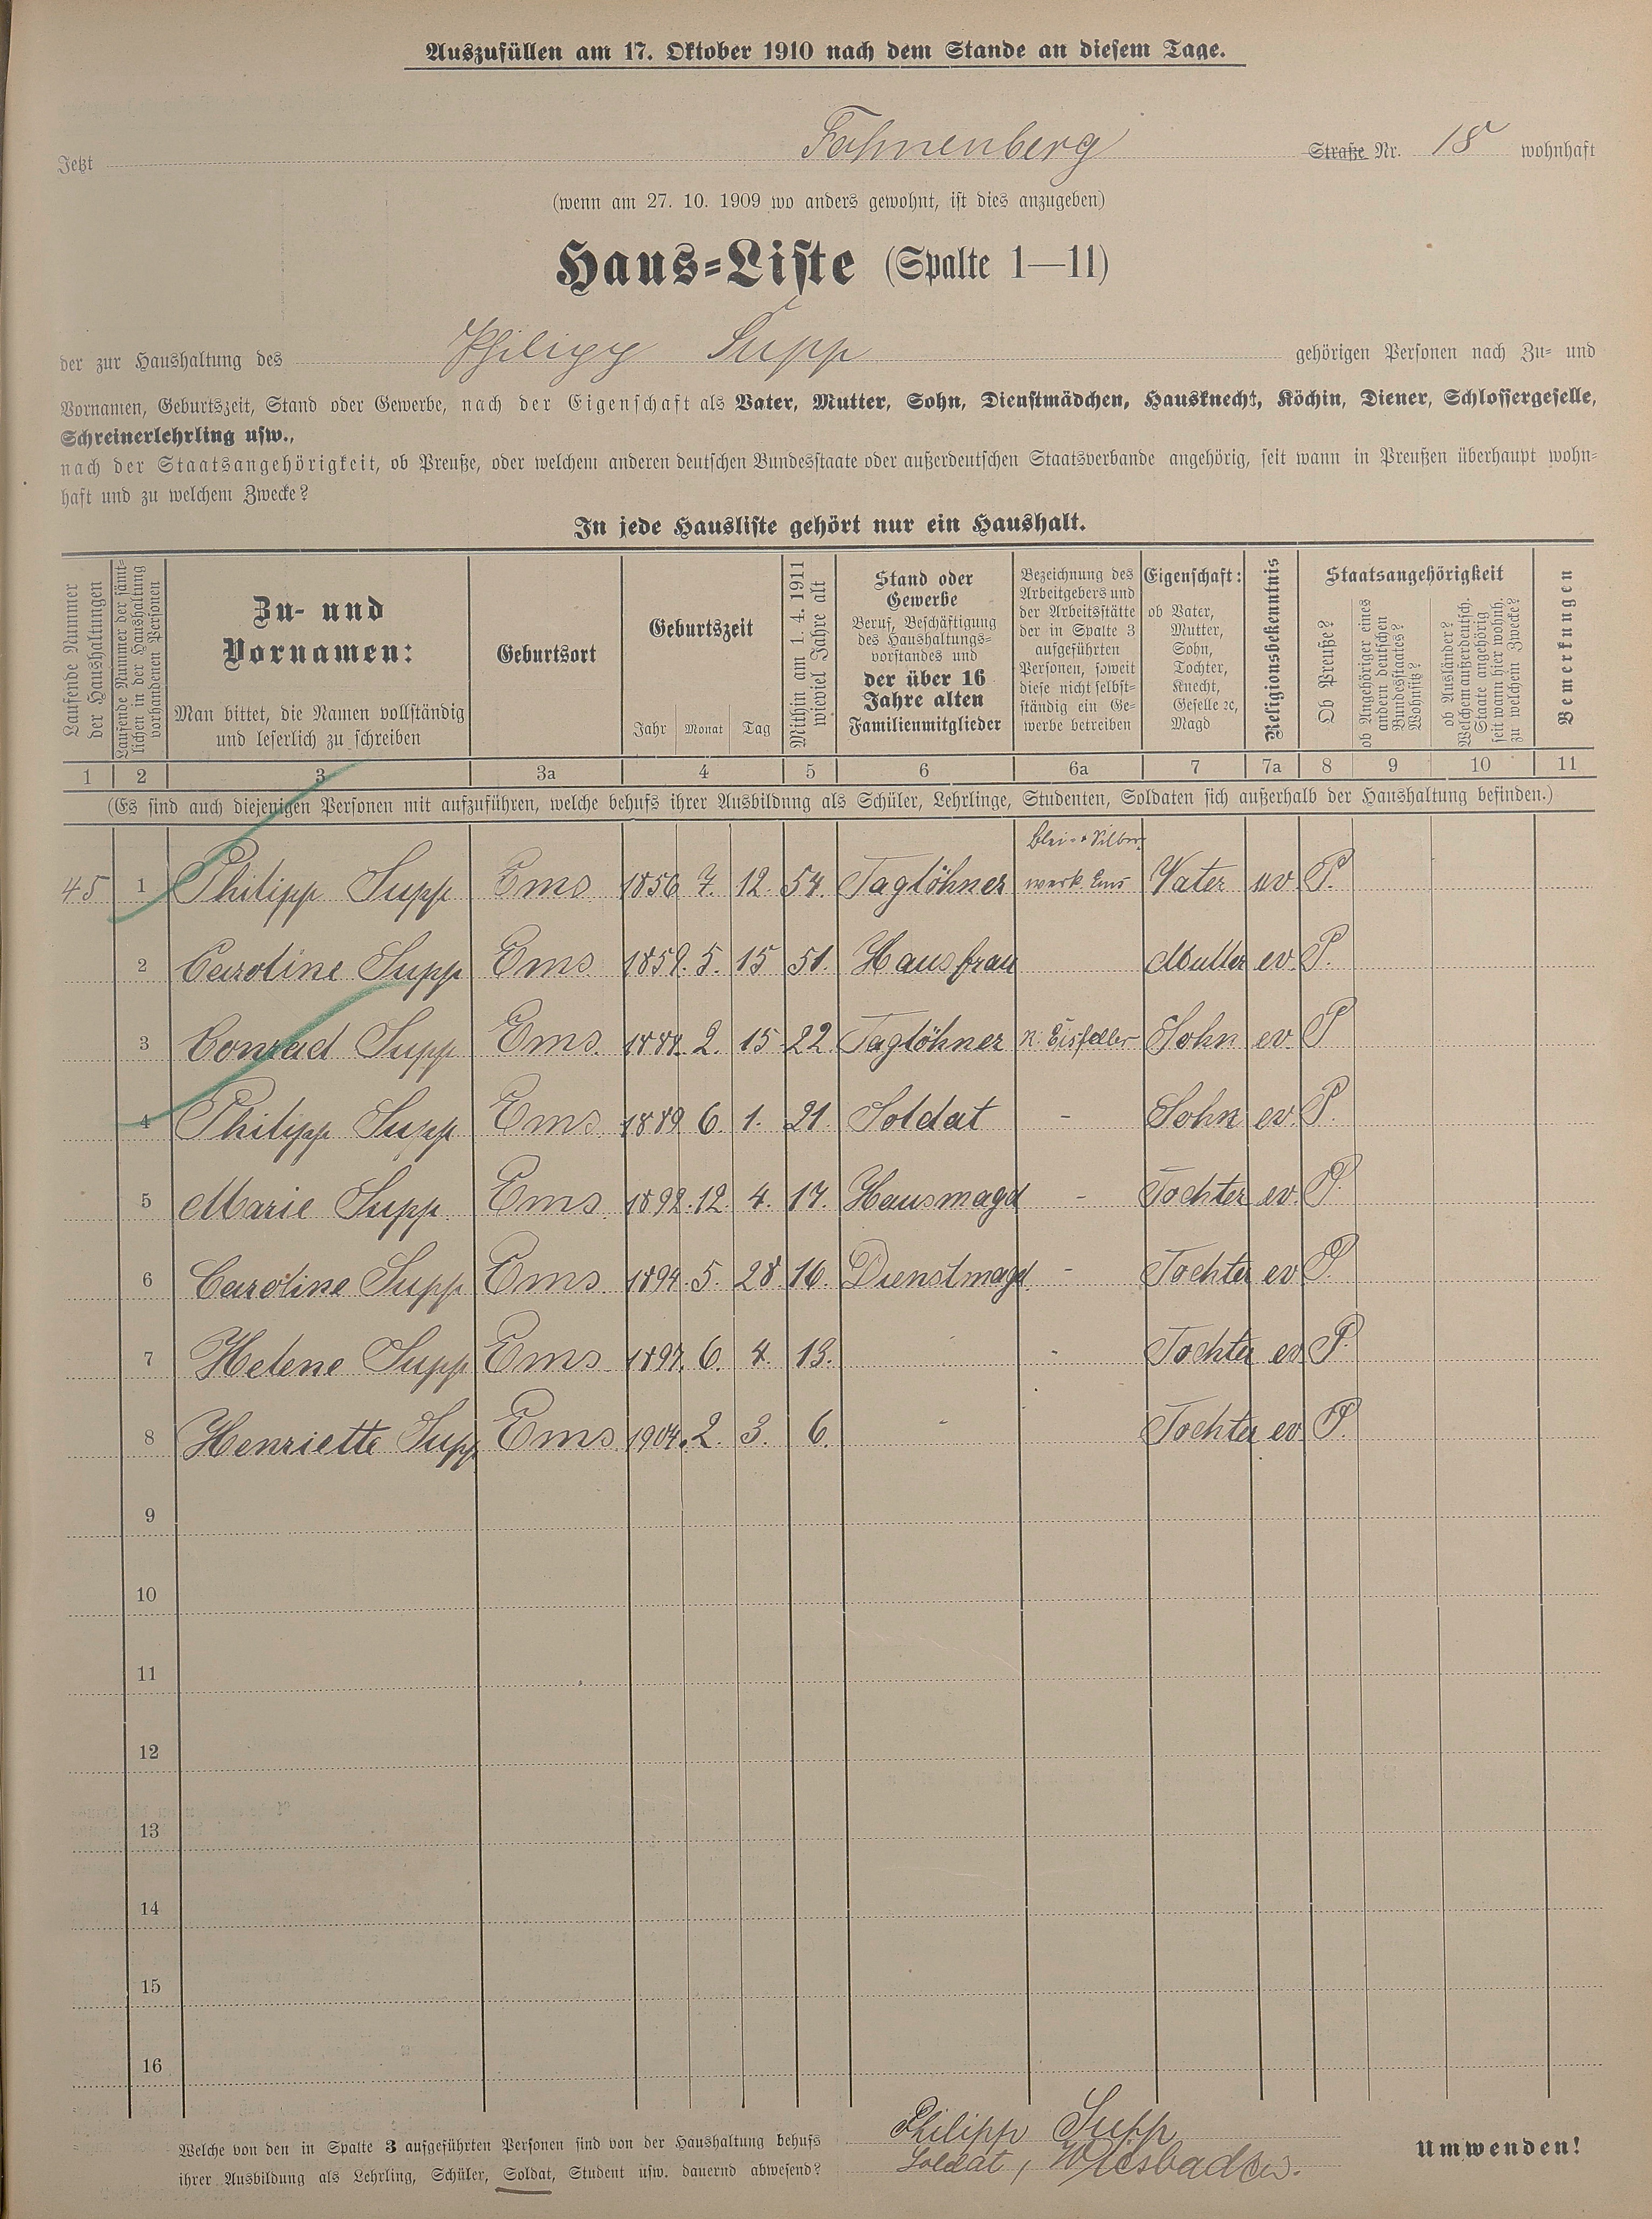 Auszufüllen am 17. Oktober 1910 nach dem Stande an diesem Tage.
Jetzt Fahnenberg Straße Nr. 18 wohnhaft
(wenn am 27. 10. 1909 wo anders gewohnt, ist dies anzugeben)
Haus-Liste (Spalte 1—11)
der zur Haushaltung des Philipp Supp gehörigen Personen nach Zu- und
Vornamen, Geburtszeit, Stand oder Gewerbe, nach der Eigenschaft als Vater, Mutter, Sohn, Dienstmädchen, Hausknecht, Köchin, Diener, Schlossergeselle,
Schreinerlehrling usw.,
nach der Staatsangehörigkeit, ob Preuße, oder welchem anderen deutschen Bundesstaate oder außerdeutschen Staatsverbande angehörig, seit wann in Preußen überhaupt wohn-
haft und zu welchem Zwecke?
In jede Hausliste gehört nur ein Haushalt.
Laufende Nummer
der Haushaltungen
Laufende Nummer der sämt-
lichen in der Haushaltung
vorhandenen Personen
Zu- und
Vornamen:
Man bittet, die Namen vollständig
und leserlich zu schreiben
Geburtsort
Geburtszeit
Jahr Monat Tag
Mithin am 1. 4. 1911
wieviel Jahre alt
Stand oder
Gewerbe
Beruf, Beschäftigung
des Haushaltungs-
vorstandes und
der über 16
Jahre alten
Familienmitglieder
Bezeichnung des
Arbeitgebers und
der Arbeitsstätte
der in Spalte 3
aufgeführten
Personen, soweit
diese nicht selbst-
ständig ein Ge-
werbe betreiben
Eigenschaft:
ob Vater,
Mutter,
Sohn,
Tochter,
Knecht,
Geselle ꝛc,
Magd
Religionsbekenntnis
Staatsangehörigkeit
Ob Preuße?
ob Angehöriger eines
andern deutschen
Bundesstaates?
Wohnsitz?
ob Ausländer?
Welchem außerdeutsch.
Staate angehörig
seit wann hier wohnh.
zu welchem Zwecke?
Bemerkungen
1 2 3 3a 4 5 6 6a 7 7a 8 9 10 11
(Es sind auch diejenigen Personen mit aufzuführen, welche behufs ihrer Ausbildung als Schüler, Lehrlinge, Studenten, Soldaten sich außerhalb der Haushaltung befinden.)
Blei- & Silber-
45 1 Philipp Supp Ems 1856 7. 12. 54. Taglöhner werk Ems Vater ev P.
2 Caroline Supp Ems 1859. 5. 15 51. Hausfrau Mutter ev. P.
3 Conrad Supp Ems. 1888. 2. 15 22 Taglöhner Sohn ev. P
4 Philipp Supp Ems. 1889 6 1. 21. Soldat - Sohn ev. P.
5 Marie Supp Ems. 1892. 12. 4. 17. Hausmagd - Tochter ev. P.
6 Caroline Supp Ems. 1894. 5. 28 16. Dienstmagd - Tochter ev P.
7 Helene Supp Ems 1897. 6. 4. 13. - Tochter ev P.
8 Henriette Supp Ems 1904. 2. 3. 6. - Tochter ev P.
9
10
11
12
13
14
15
16
Welche von den in Spalte 3 aufgeführten Personen sind von der Haushaltung behufs
ihrer Ausbildung als Lehrling, Schüler, Soldat, Student usw. dauernd abwesend?
Philipp Supp
Soldat, Wiesbaden.
Umwenden!